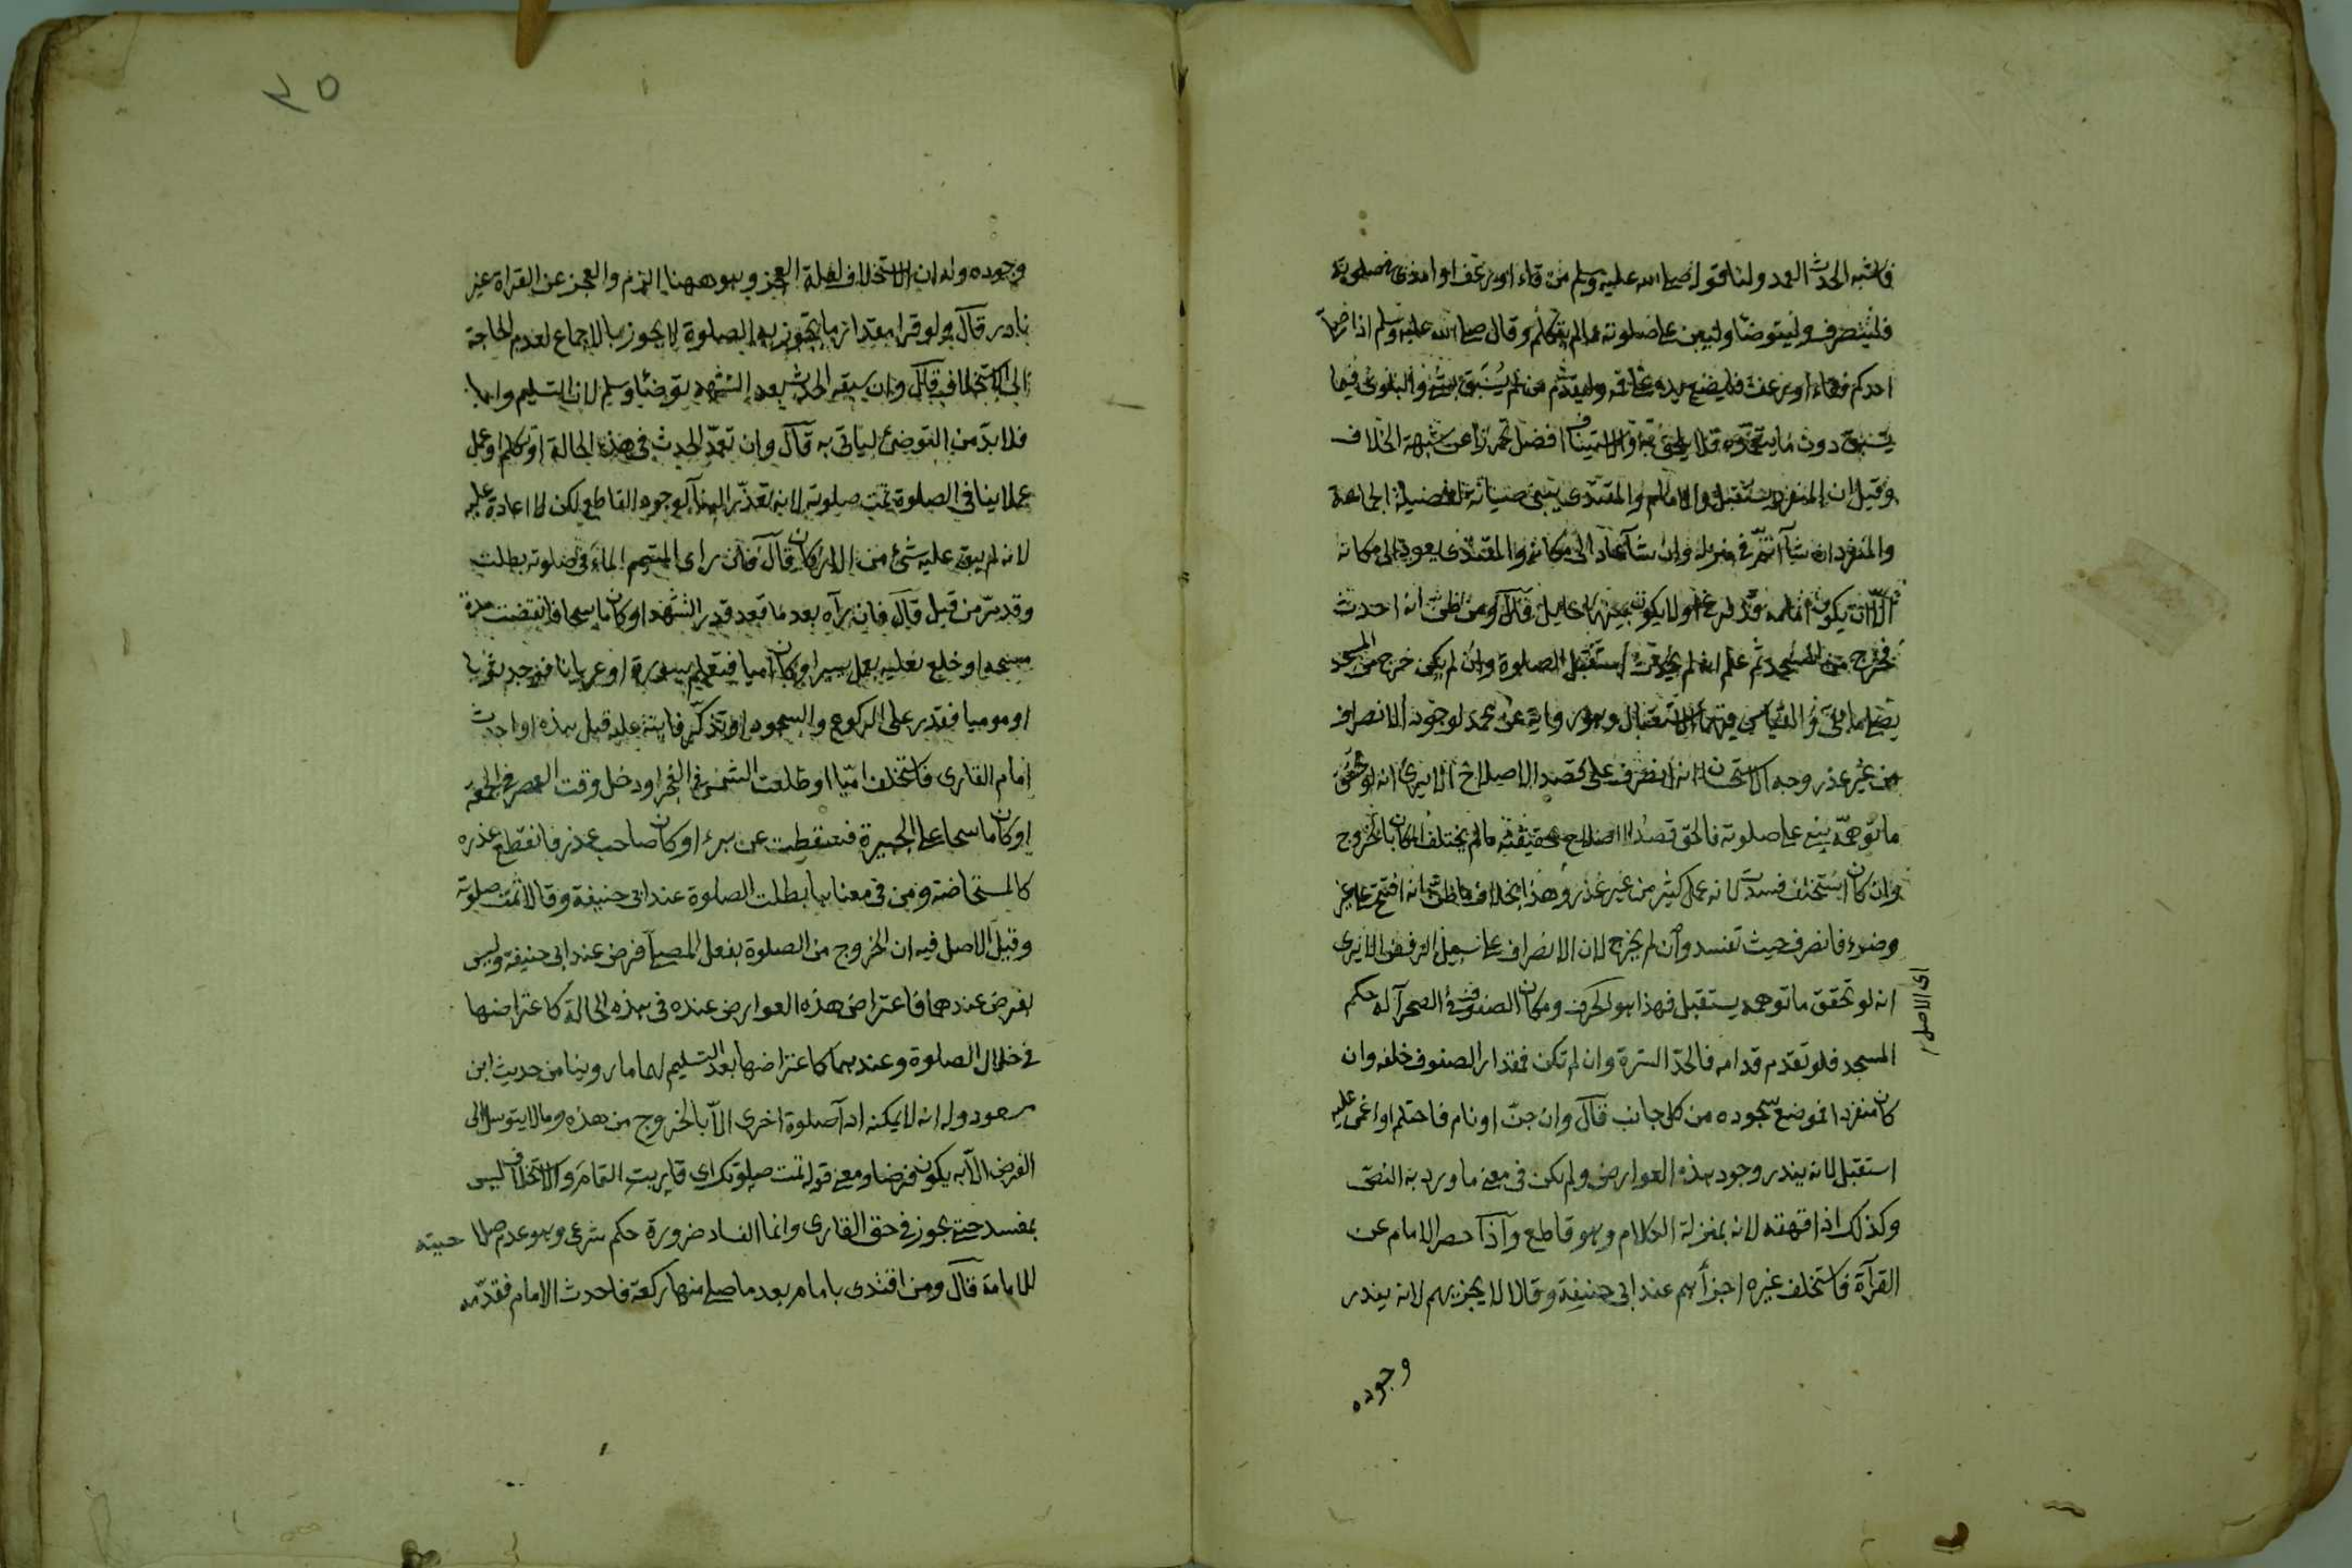 فاشبه الحدث العمد ولنا قوله صلى الله عليه وسلم من قاء او رعف او امذى في صلوته
فلينصرف وليتوضأ وليبن على صلوته ما لم يتكلم وقال صلى الله عليه وسلم اذا صلى
احدكم فقاء او رعف فليضع يده على فمه وليقدم من لم يسبق بشئ والبلوى فيما
يسبق دون ما يتعمده فلا يلحق به والاستيناف افضل تحرزا عن شبهة الخلاف
وقيل ان المنفرد يستقبل والامام والمقتدى يبنى صيانة لفضيلة الجماعة
والمنفرد ان شآ اتم في منزله وان شآ عاد الى مكانه والمقتدى يعود الى مكانه
الّا ان يكون امامه قد فرغ او لا يكون بينهما حايل قال ومن ظن انه احدث
فخرج من المسجد ثم علم انه لم يحدث استقبل الصلوة وان لم يكن خرج من المسجد
يصلى ما بقى والقياس فيهما الاستقبال وهو رواية عن محمد لوجود الانصراف
من غير عذر وجه الاستحسان انه انصرف على قصد الاصلاح الا يرى انه لو تحقق
ما توهمه بنى على صلوته فالحق قصد الاصلاح بحقيقته ما لم يختلف المكان بالخروج
وان كان استخلف فسدت لانه عمل كثير من غير عذر وهذا بخلاف ما ظن انه افتتح على غير
وضوء فانصرف حيث تفسد وان لم يخرج لان الانصراف على سبيل الرفض الا يرى
انه لو تحقق ما توهمه يستقبل فهذا هو الحرف ومكان الصفوف في الصحرآ له حكم
اى الاصل
المسجد فلو تقدم قدامه فالحد السترة وان لم تكن فمقدار الصفوف خلفه وان
كان منفردا فموضع سجوده من كل جانب قال وان جن او نام فاحتلم او اغمى عليه
استقبل لانه يندر وجود هذه العوارض ولم يكن في معنى ما ورد به النص
وكذلك اذا قهقه لانه بمنزلة الكلام وهو قاطع وآذا حصر الامام عن
القرآة فاستخلف غيره اجزأهم عند ابى حنيفة وقالا لا يجزيهم لانه يندر
وجوده
٣٥
وجوده وله ان الاستخلاف لعلة العجز وهو ههنا الزم والعجز عن القراة غير
نادر قال ولو قرا مقدار ما يجوز به الصلوة لا يجوز بالاجماع لعدم الحاجة
الى الاستخلاف قال وان سبقه الحدث بعد التشهد توضئا وسلم لان التسليم واجب
فلا بدّ من التوضئ لياتى به قال وان تعمد الحدث في هذه الحالة او تكلم او عمل
عملا ينافى الصلوة تمت صلوته لانه تعذر البنآ لوجود القاطع لكن لا اعادة عليه
لانه لم يبق عليه شئ من الاركان قال فان راى المتيمم المآء في صلوته بطلت
وقد مرّ من قبل قال فان رآه بعد ما قعد قدر التشهد او كان ماسحا فانقضت مدة
مسحه او خلع نعليه بعمل يسير او كان اميا فتعلم سورة او عريانا فوجد ثوبا
او موميا فقدر على الركوع والسجود او تذكّر فايتة عليه قبل هذه او احدث
امام القارى فاستخلف اميّا او طلعت الشمس في الفجر او دخل وقت العصر في الجمعة
او كان ماسحا على الجبيرة فسقطت عن برء او كان صاحب عذر فانقطع عذره
كالمستحاضة ومن في معناها بطلت الصلوة عند ابى حنيفة وقالا تمت صلوته
وقيل الاصل فيه ان الخروج من الصلوة بفعل المصلى فرض عند ابى حنيفة وليس
بفرض عندهما فاعتراض هذه العوارض عنده في هذه الحالة كاعتراضها
في خلال الصلوة وعندهما كاعتراضها بعد التسليم لهما ما روينا من حديث ابن
مسعود وله انه لا يمكنه ادآ صلوة اخرى الّا بالخروج من هذه وما لا يتوسل الى
الفرض الّا به يكون فرضا ومعنى قوله تمت صلوتك اى قاربت التمام والاستخلاف ليس
بمفسد حتى يجوز في حق القارى وانما الفساد ضرورة حكم شرعى وهو عدم صلاحيته
للامامة قال ومن اقتدى بامام بعد ما صلى منها ركعة فاحدث الامام فقدّمه